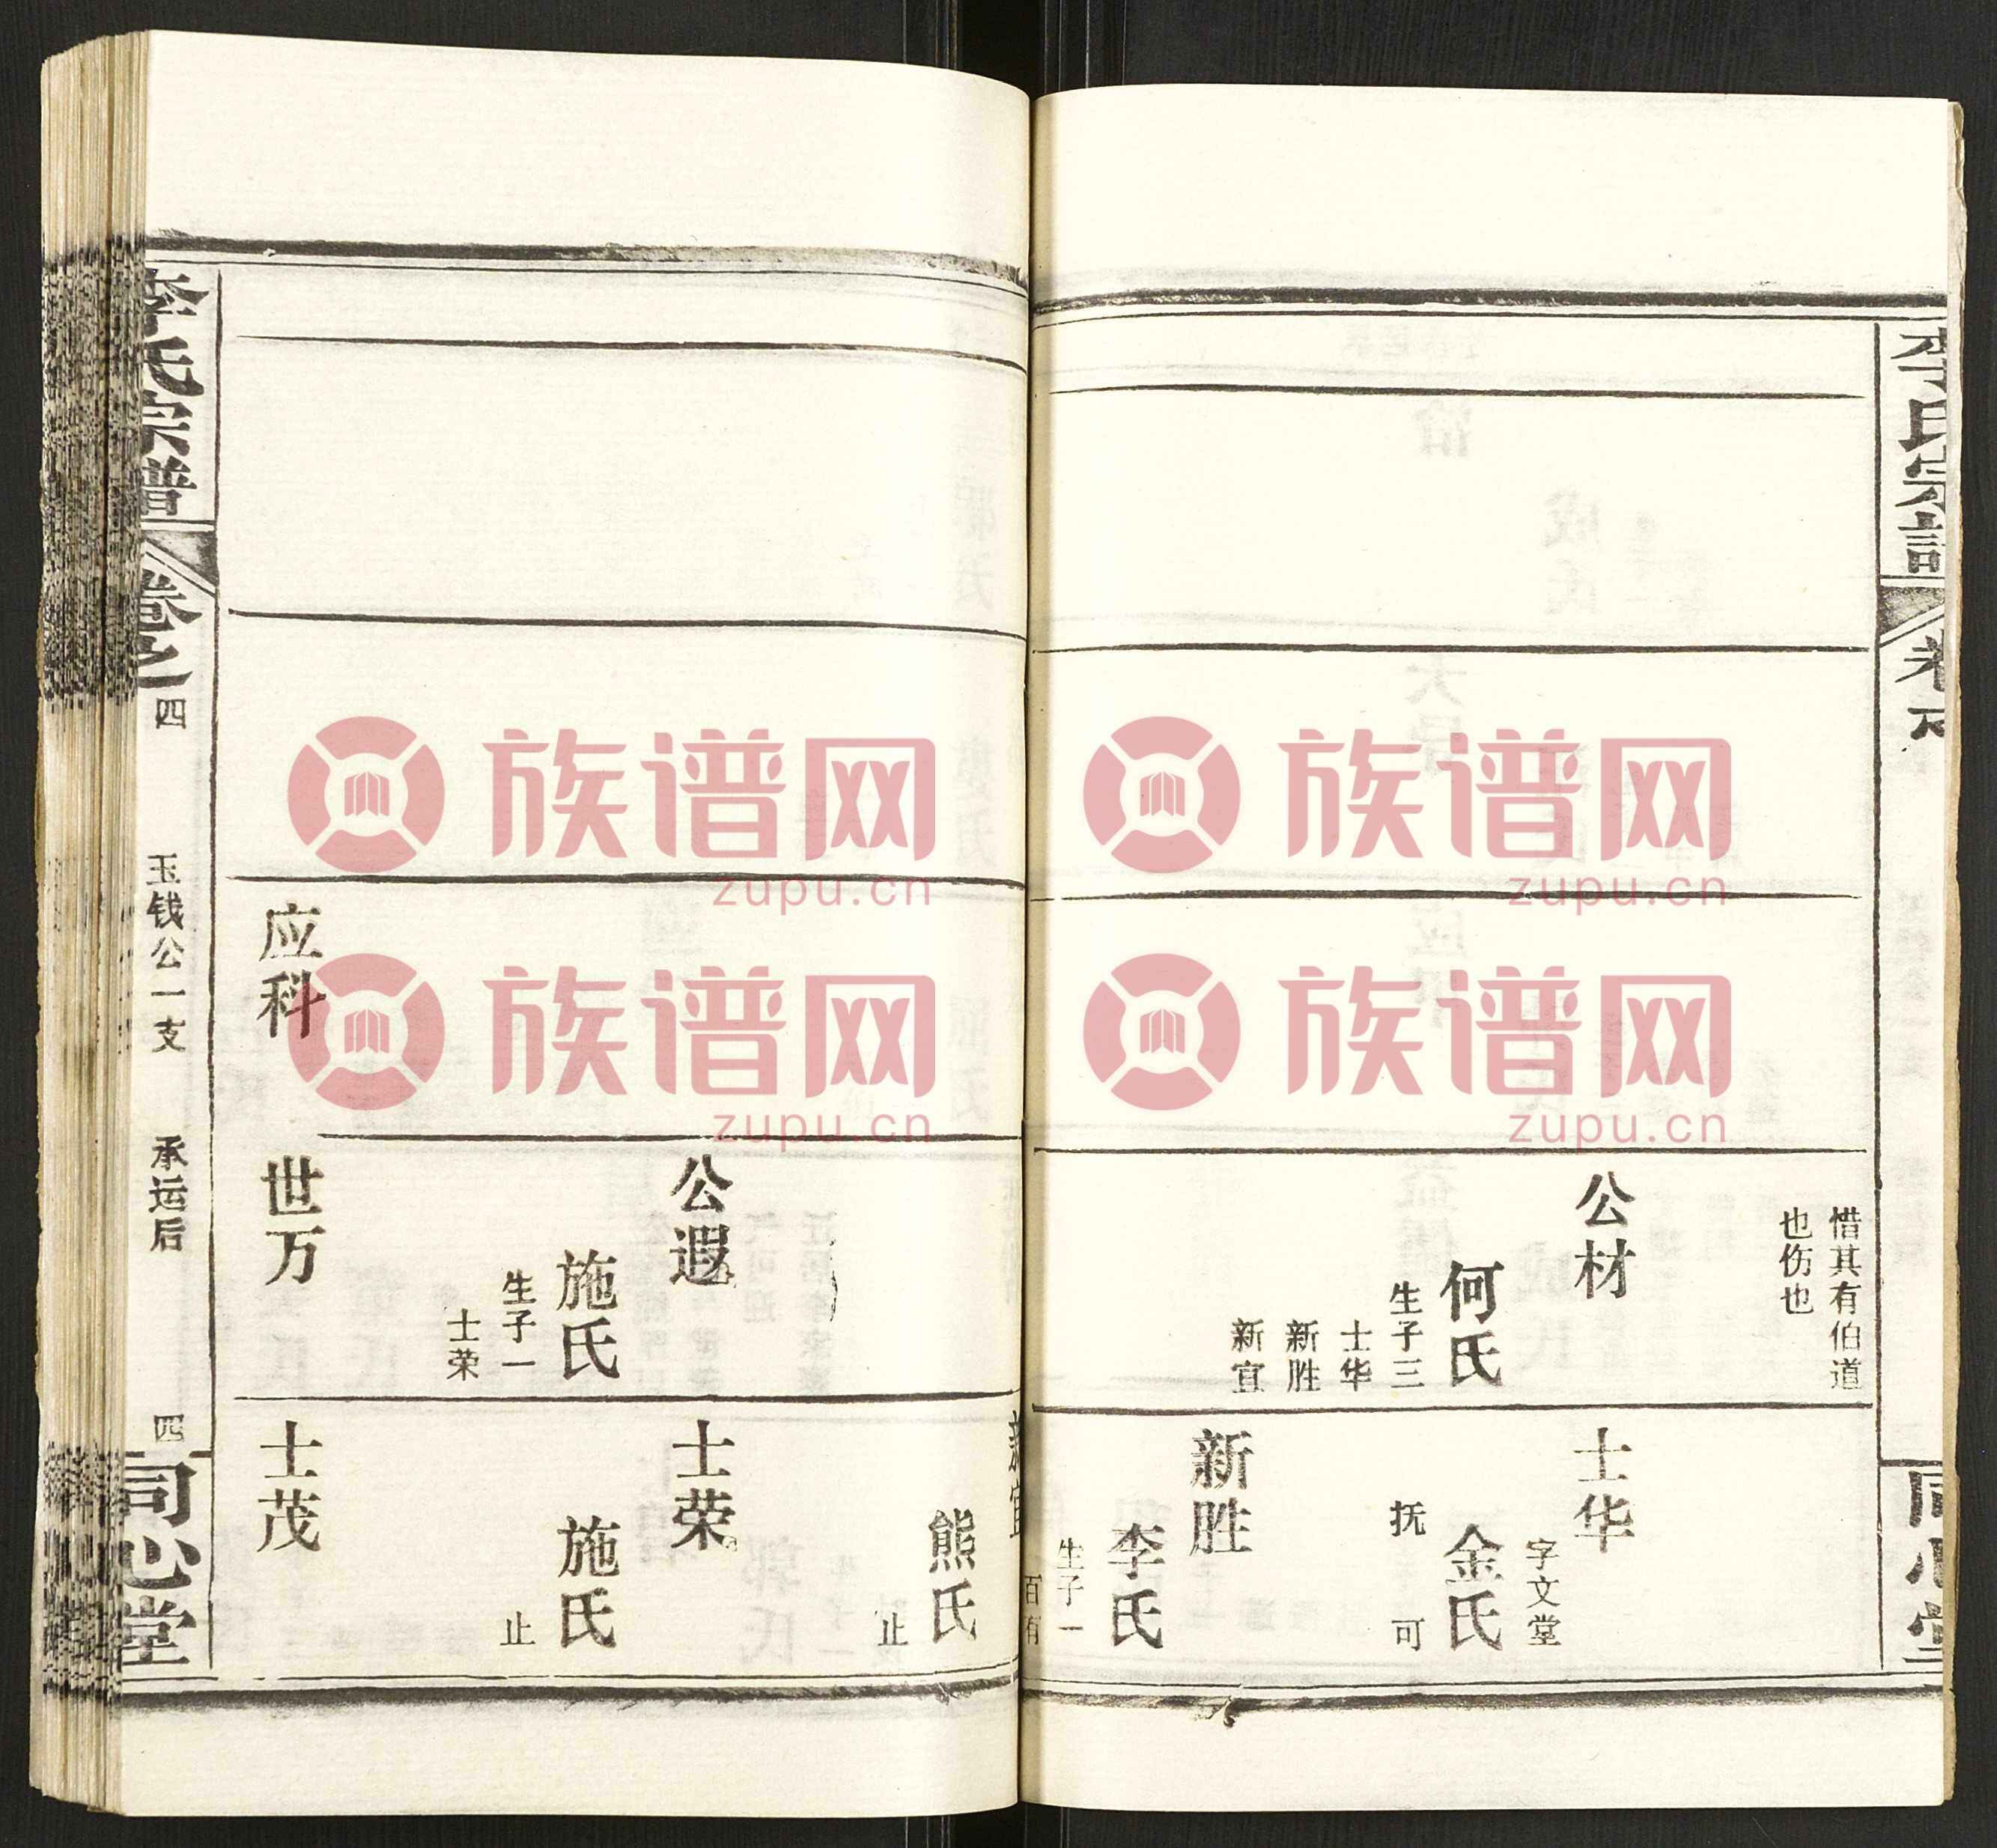 李氏宗谱
惜其有伯道
也伤也
公材
何氏
生子三
士华
新胜
新宜
士华
字文堂
金氏
抚 可
新胜
李氏
生子一
百有
同心堂
新宜
熊氏
止
公遐
施氏
生子一
士荣
士荣
施氏
止
应科
世万
士茂
李氏宗谱
卷之
四
玉钱公一支
承运后
四
同心堂
族谱网
zupu.cn
族谱网
zupu.cn
族谱网
zupu.cn
族谱网
zupu.cn